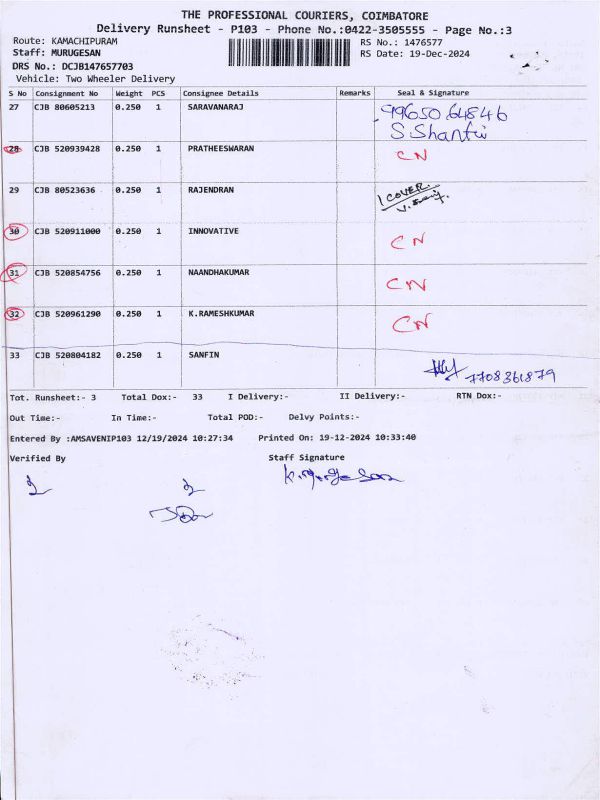 THE PROFESSIONAL COURIERS, COIMBATORE
Delivery Runsheet - P103 - Phone No.:0422-3505555 - Page No.:3
Route: KAMACHIPURAM RS No.: 1476577
Staff: MURUGESAN RS Date: 19-Dec-2024
DRS No.: DCJB147657703
Vehicle: Two Wheeler Delivery
S No Consignment No Weight PCS Consignee Details Remarks Seal & Signature
27 CJB 80605213 0.250 1 SARAVANARAJ 9965064846
S Shanthi
28 CJB 520939428 0.250 1 PRATHEESWARAN CN
29 CJB 80523636 0.250 1 RAJENDRAN 1 COVER.
30 CJB 520911000 0.250 1 INNOVATIVE CN
31 CJB 520854756 0.250 1 NAANDHAKUMAR CN
32 CJB 520961290 0.250 1 K.RAMESHKUMAR CN
33 CJB 520804182 0.250 1 SANFIN 7708361879
Tot. Runsheet:- 3 Total Dox:- 33 I Delivery:- II Delivery:- RTN Dox:-
Out Time:- In Time:- Total POD:- Delvy Points:-
Entered By :AMSAVENIP103 12/19/2024 10:27:34 Printed On: 19-12-2024 10:33:40
Verified By Staff Signature